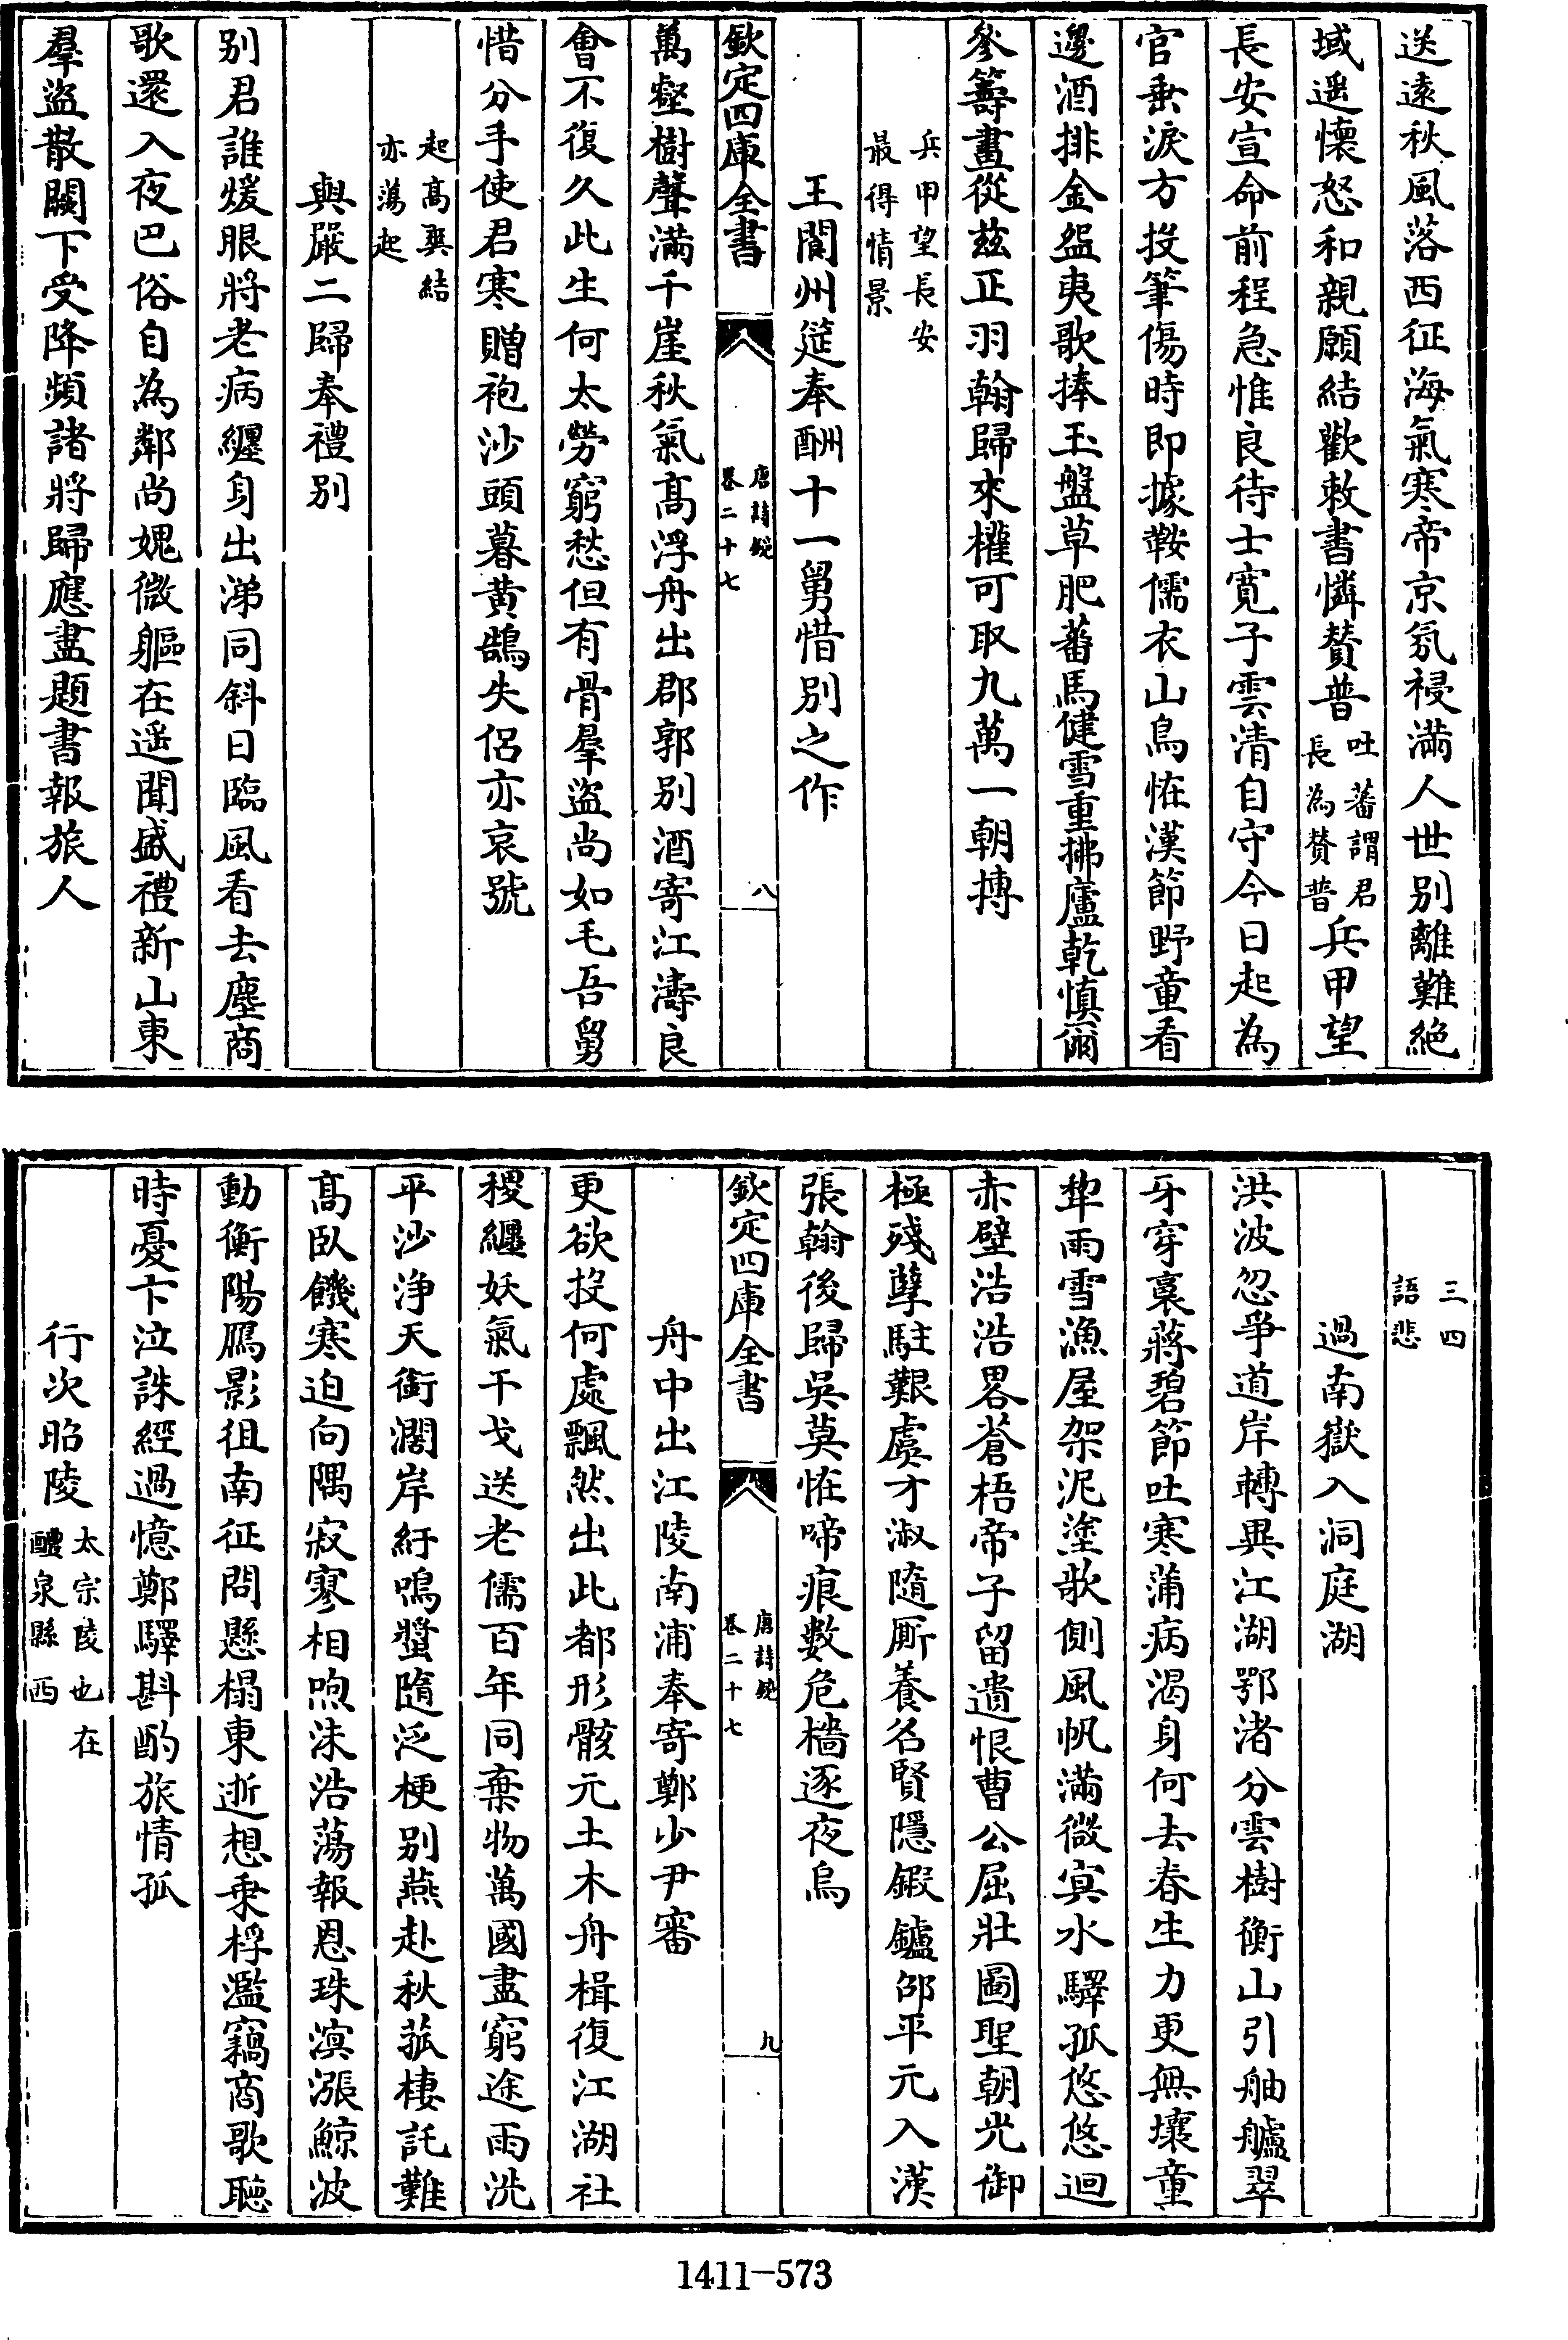 送遠秋風落西征海氣寒帝京氛祲滿人世别離難絶
域遥懷怒和親願結歡敕書憐賛普
吐蕃謂君
長為賛普
兵甲望
長安宣命前程急惟良待士寛子雲清自守今日起為
官垂淚方投筆傷時即據鞍儒衣山鳥怪漢節野童看
邊酒排金盌夷歌捧玉盤草肥蕃馬健雪重拂廬乾慎爾
參籌畫從兹正羽翰歸來權可取九萬一朝摶
兵甲望長安
最得情景
王閬州筵奉酬十一舅惜别之作
欽定四庫全書
唐詩鏡
卷二十七
八
萬壑樹聲滿千崖秋氣髙浮舟出郡郭别酒寄江濤良
會不復久此生何太勞窮愁但有骨羣盜尚如毛吾舅
惜分手使君寒贈袍沙頭暮黄鵠失侶亦哀號
起髙爽結
亦蕩起
與嚴二歸奉禮别
别君誰煖眼將老病纏身出涕同斜日臨風看去塵商
歌還入夜巴俗自為鄰尚媿微軀在遥聞盛禮新山東
羣盜散闕下受降頻諸將歸應盡題書報旅人
三四
語悲
過南嶽入洞庭湖
洪波忽爭道岸轉異江湖鄂渚分雲樹衡山引舳艫翠
牙穿裛蔣碧節吐寒蒲病渴身何去春生力更無壤童
犂雨雪漁屋架泥塗歌側風帆滿微冥水驛孤悠悠迴
赤壁浩浩畧蒼梧帝子留遺恨曹公屈壯圖聖朝光御
極殘孽駐艱虞才淑隨厮養名賢隱鍜鑪邵平元入漢
張翰後歸吳莫怪啼痕數危檣逐夜烏
欽定四庫全書
唐詩鏡
卷二十七
九
舟中出江陵南浦奉寄鄭少尹審
更欲投何處飄然出此都形骸元土木舟楫復江湖社
稷纏妖氣干戈送老儒百年同棄物萬國盡窮途雨洗
平沙净天銜濶岸紆鳴螿隨泛梗别燕赴秋菰棲託難
髙臥饑寒迫向隅寂寥相呴沫浩蕩報恩珠溟漲鯨波
動衡陽鴈影徂南征問懸榻東逝想乗桴濫竊商歌聽
時憂卞泣誅經過憶鄭驛斟酌旅情孤
行次昭陵
太宗陵也在
醴泉縣西
1411-573